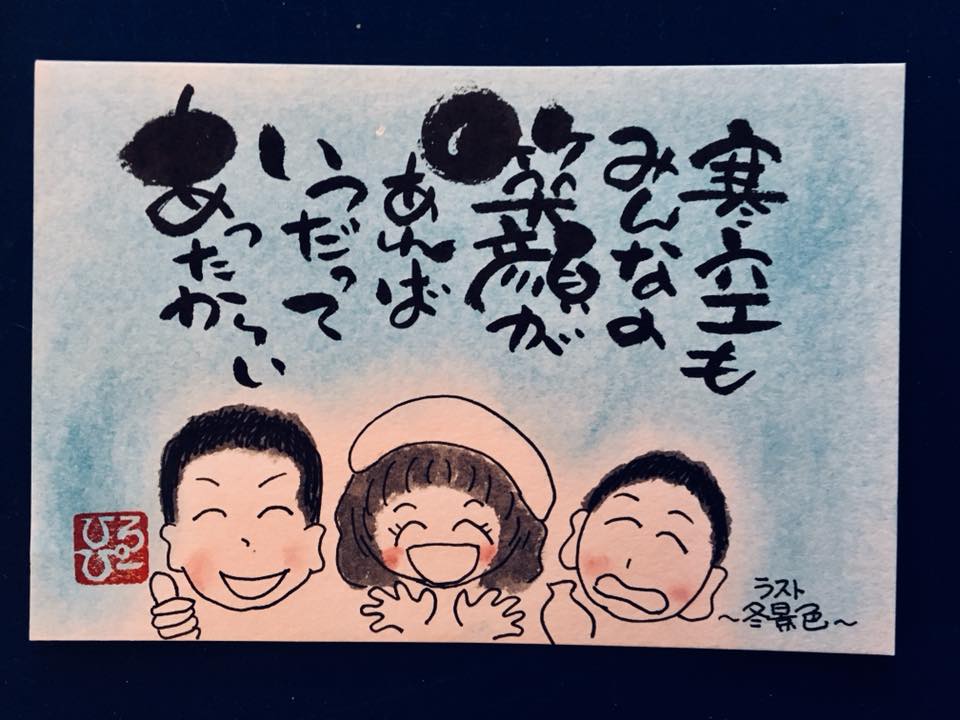 寒空も
みんなの
笑顔が
あれば
いつだって
あったかい
ひろ
ぴー
ラスト
～冬景色～